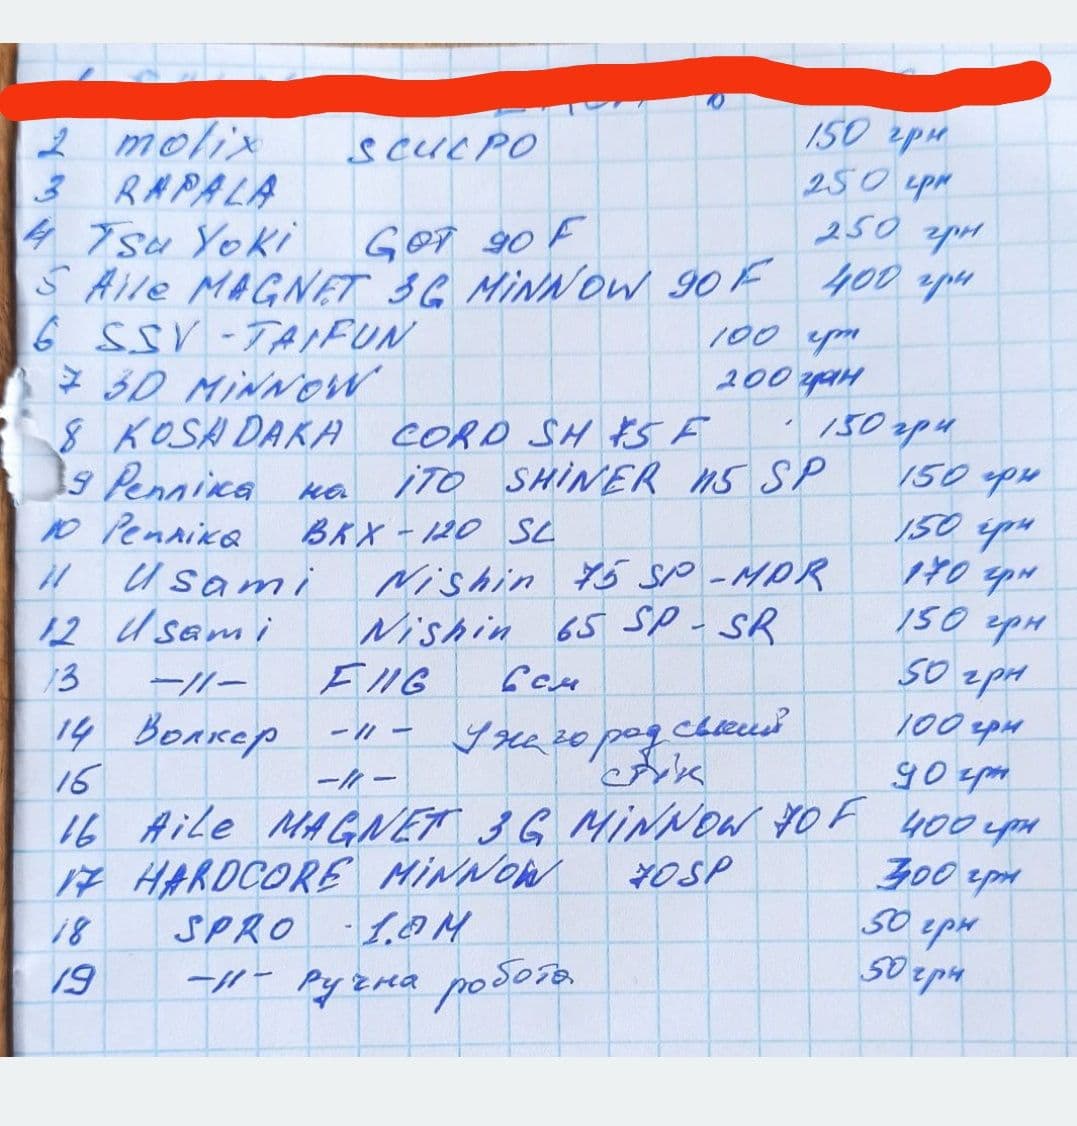 2 molix SCULPO 150 грн
3 RAPALA 250 грн
4 Tsu Yoki GOT 90 F 250 грн
5 Aile MAGNET 3G MiNNOW 90 F 400 грн
6 SSV - TAIFUN 100 грн
7 3D MiNNOW 200 грн
8 KOSADAKA CORD SH 75 F 150 грн
9 Репліка на iTO SHiNER 115 SP 150 грн
10 Репліка ВКХ - 120 SL 150 грн
11 Usami Nishin 75 SP - MDR 170 грн
12 Usami Nishin 65 SP - SR 150 грн
13 -//- F 11G 6 см 50 грн
14 Волкер -//- Ужагородський 100 грн
15 -//- стік 90 грн
16 Aile MAGNET 3G MiNNOW 70 F 400 грн
17 HARDCORE MiNNOW 70 SP 300 грн
18 SPRO 1.0 M 50 грн
19 -//- Ручна робота 50 грн